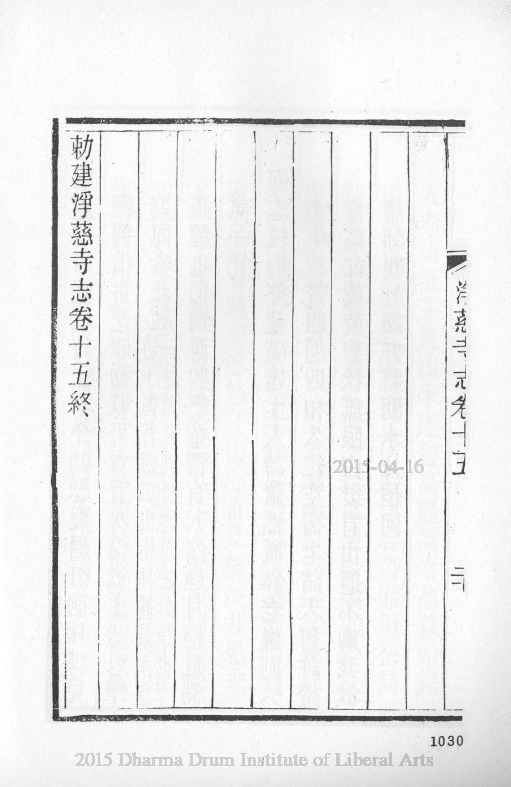 淨慈寺志卷十五
勅建淨慈寺志卷十五終
2015-04-16
1030
2015 Dharma Drum Institute of Liberal Arts